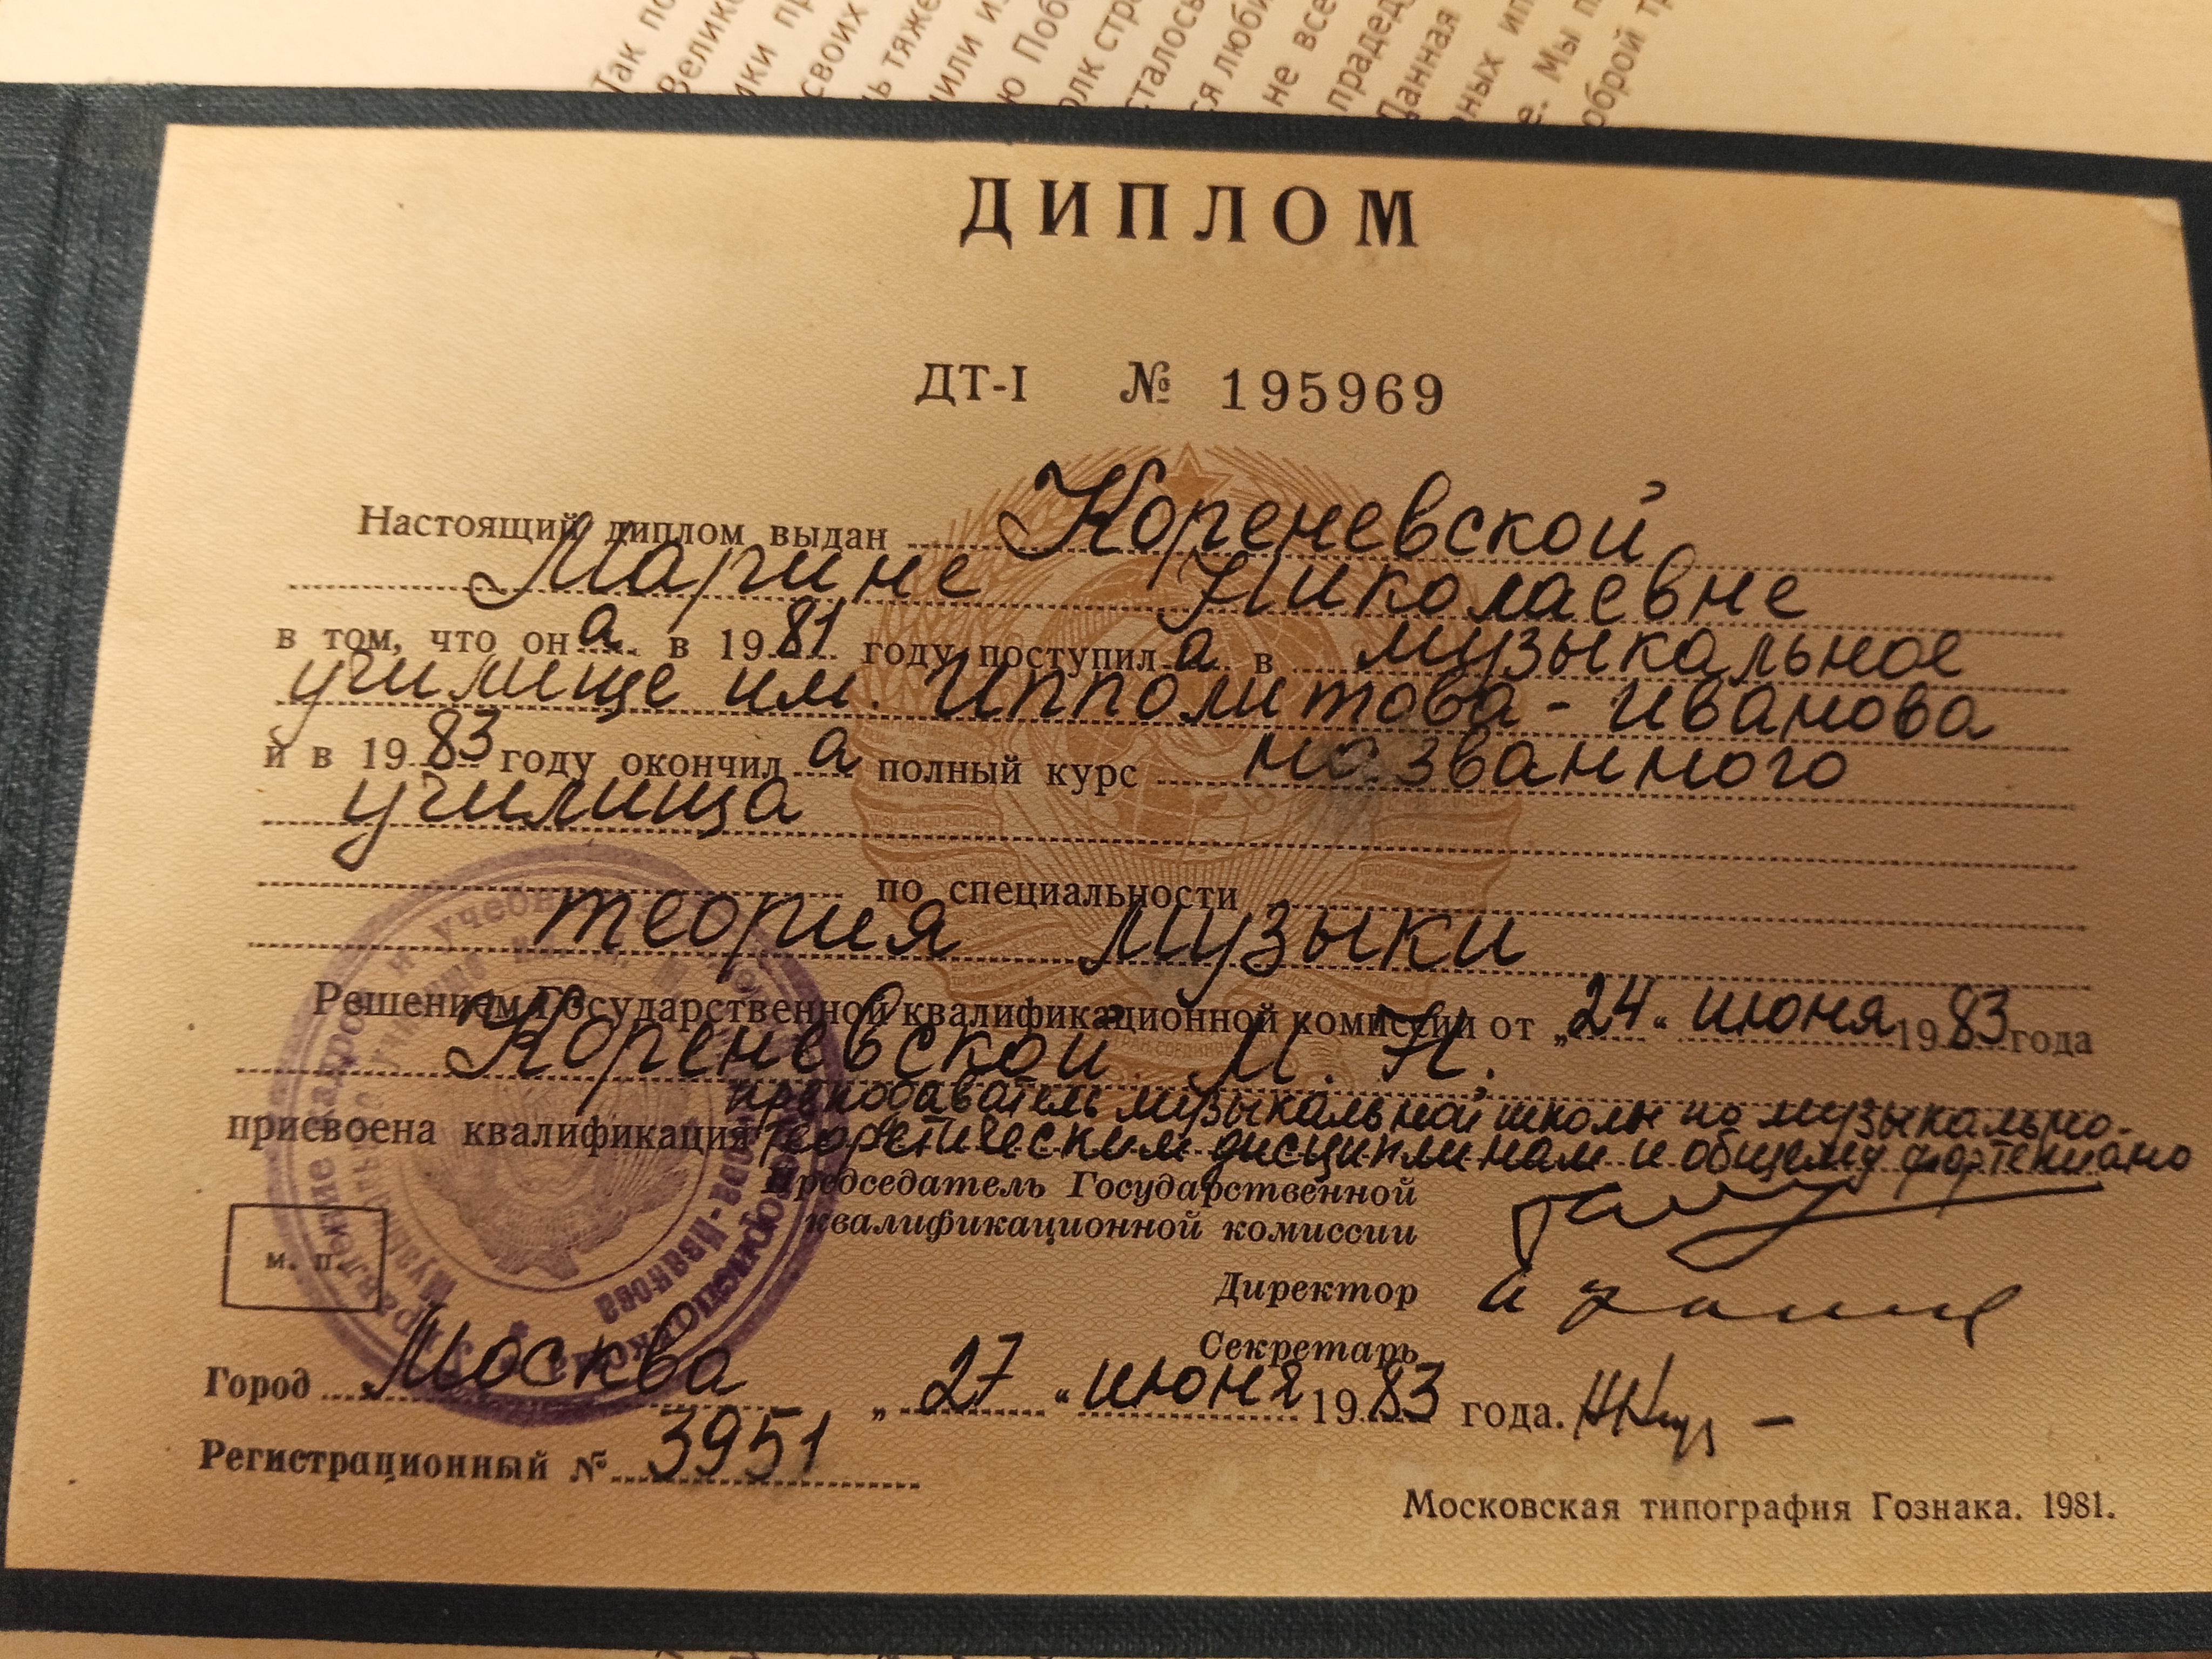 Так по
Велико
ики пр
своих
ь тяже
или из
ю Поб
олк стр
сталось
ся люби
не все
прадед
Данная
ных ип
е. Мы п
оброй тр
ДИПЛОМ
ДТ-I № 195969
Настоящий диплом выдан Кореневской
Марине Николаевне
в том, что она в 1981 году поступила в музыкальное
училище им. Ипполитова-Иванова
и в 1983 году окончила полный курс названного
училища
по специальности
теория музыки
Решением Государственной квалификационной комиссии от „24" июня 1983 года
Кореневской М. Н.
присвоена квалификация преподаватель музыкальной школы по музыкально-
теоретическим дисциплинам и общему фортепиано
Председатель Государственной
квалификационной комиссии
м. п.
Директор
Секретарь
Город Москва „27" июня 1983 года.
Регистрационный № 3951
Московская типография Гознака. 1981.